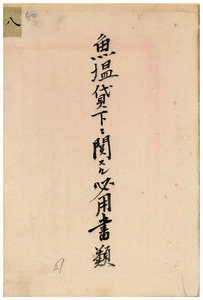 八
魚塭貸下ニ関スル必用書類